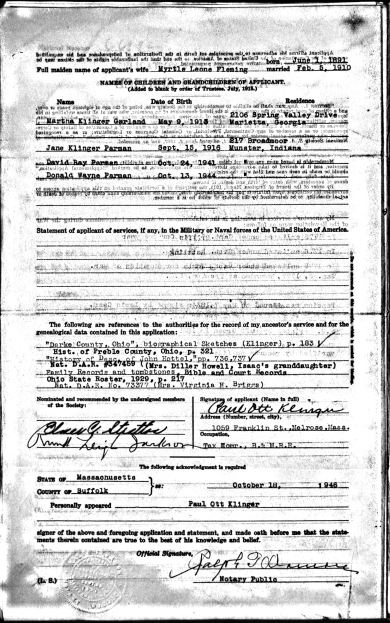 born June 1, 1891
Full maiden name of applicant's wife Myrtle Leone Fleming married Feb. 5, 1910
NAMES OF CHILDREN AND GRANDCHILDREN OF APPLICANT.
(Added to blank by order of Trustees, July, 1915.)
Name Date of Birth Residence
2106 Spring Valley Drive
Martha Klinger Garland May 9, 1913 Marietta, Georgia
817 Broadmoor
Jane Klinger Parman Sept. 15, 1916 Munster, Indiana
David Ray Parman Oct. 24, 1941
Donald Wayne Parman Oct. 13, 1944 "
Statement of applicant of services, if any, in the Military or Naval forces of the United States of America.
The following are references to the authorities for the record of my ancestor's service and for the
genealogical data contained in this application:
"Darke County, Ohio", biographical Sketches (Klinger), p. 183
Hist. of Preble County, Ohio, p. 321
"History of Desc. of John Hottel," pp. 736,737
Nat. D.A.R. #347459 (Mrs. Diller Howell, Isaac's granddaughter)
Family Records and tombstones, Bible and Court Records
Ohio State Roster, 1929, p. 217
Nat. D.A.R. No. 73377 (Mrs. Virginia N. Briggs)
Nominated and recommended by the undersigned members
of the Society:
Signature of applicant (Name in full)
Paul Ott Klinger
Address (Number, street, city),
1059 Franklin St., Melrose, Mass.
Occupation,
The following acknowledgment is required
STATE OF Massachusetts
COUNTY OF Suffolk
ss:
October 18, 1946
Personally appeared Paul Ott Klinger
signer of the above and foregoing application and statement, and made oath before me that the state-
ments therein contained are true to the best of his knowledge and belief.
Official Signature,
Notary Public
(L. S.)